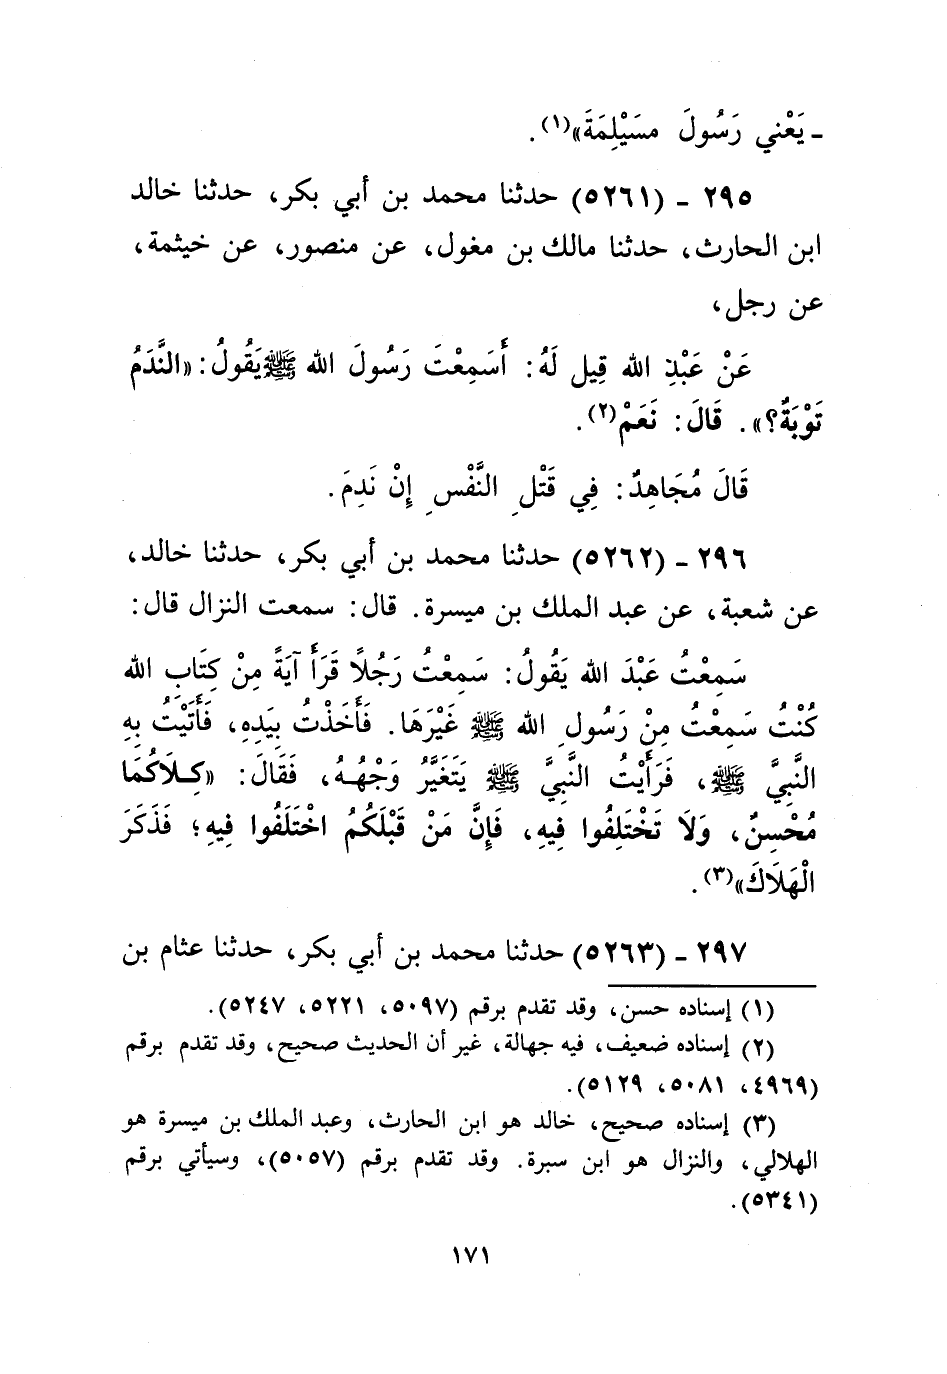 ـ يَعْني رَسُولَ مسَيْلِمَةَ»(١).
٢٩٥ ـ (٥٢٦١) حدثنا محمد بن أبي بكر، حدثنا خالد
ابن الحارث، حدثنا مالك بن مغول، عن منصور، عن خيثمة،
عن رجل،
عَنْ عَبْدِ الله قِيل لَهُ: أَسَمِعْتَ رَسُولَ الله ﷺ يَقُولُ: «النَّدَمُ
تَوْبَةٌ؟». قَالَ: نَعَمْ(٢).
قَالَ مُجَاهِدٌ: فِي قَتْلِ النَّفْسِ إِنْ نَدِمَ.
٢٩٦ ـ (٥٢٦٢) حدثنا محمد بن أبي بكر، حدثنا خالد،
عن شعبة، عن عبد الملك بن ميسرة. قال: سمعت النزال قال:
سَمِعْتُ عَبْدَ الله يَقُولُ: سَمِعْتُ رَجُلًا قَرَأَ آيَةً مِنْ كِتَابِ الله
كُنْتُ سَمِعْتُ مِنْ رَسُولِ الله ﷺ غَيْرَهَا. فَأَخَذْتُ بِيَدِهِ، فَأَتَيْتُ بِهِ
النَّبِيَّ ﷺ، فَرَأَيْتُ النَّبِيَّ ﷺ يَتَغَيَّرُ وَجْهُهُ، فَقَالَ: «كِلَاكُمَا
مُحْسِنٌ، وَلَا تَخْتَلِفُوا فِيهِ، فَإِنَّ مَنْ قَبْلَكُمُ اخْتَلَفُوا فِيهِ؛ فَذَكَرَ
الْهَلَاكَ»(٣).
٢٩٧ ـ (٥٢٦٣) حدثنا محمد بن أبي بكر، حدثنا عثام بن
(١) إسناده حسن، وقد تقدم برقم (٥٠٩٧، ٥٢٢١، ٥٢٤٧).
(٢) إسناده ضعيف، فيه جهالة، غير أن الحديث صحيح، وقد تقدم برقم
(٤٩٦٩، ٥٠٨١، ٥١٢٩).
(٣) إسناده صحيح، خالد هو ابن الحارث، وعبد الملك بن ميسرة هو
الهلالي، والنزال هو ابن سبرة. وقد تقدم برقم (٥٠٥٧)، وسيأتي برقم
(٥٣٤١).
١٧١